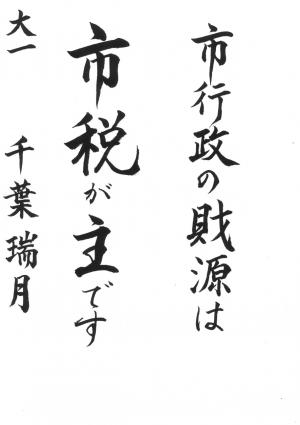 市行政の財源は
市税が主です
大一 千葉瑞月